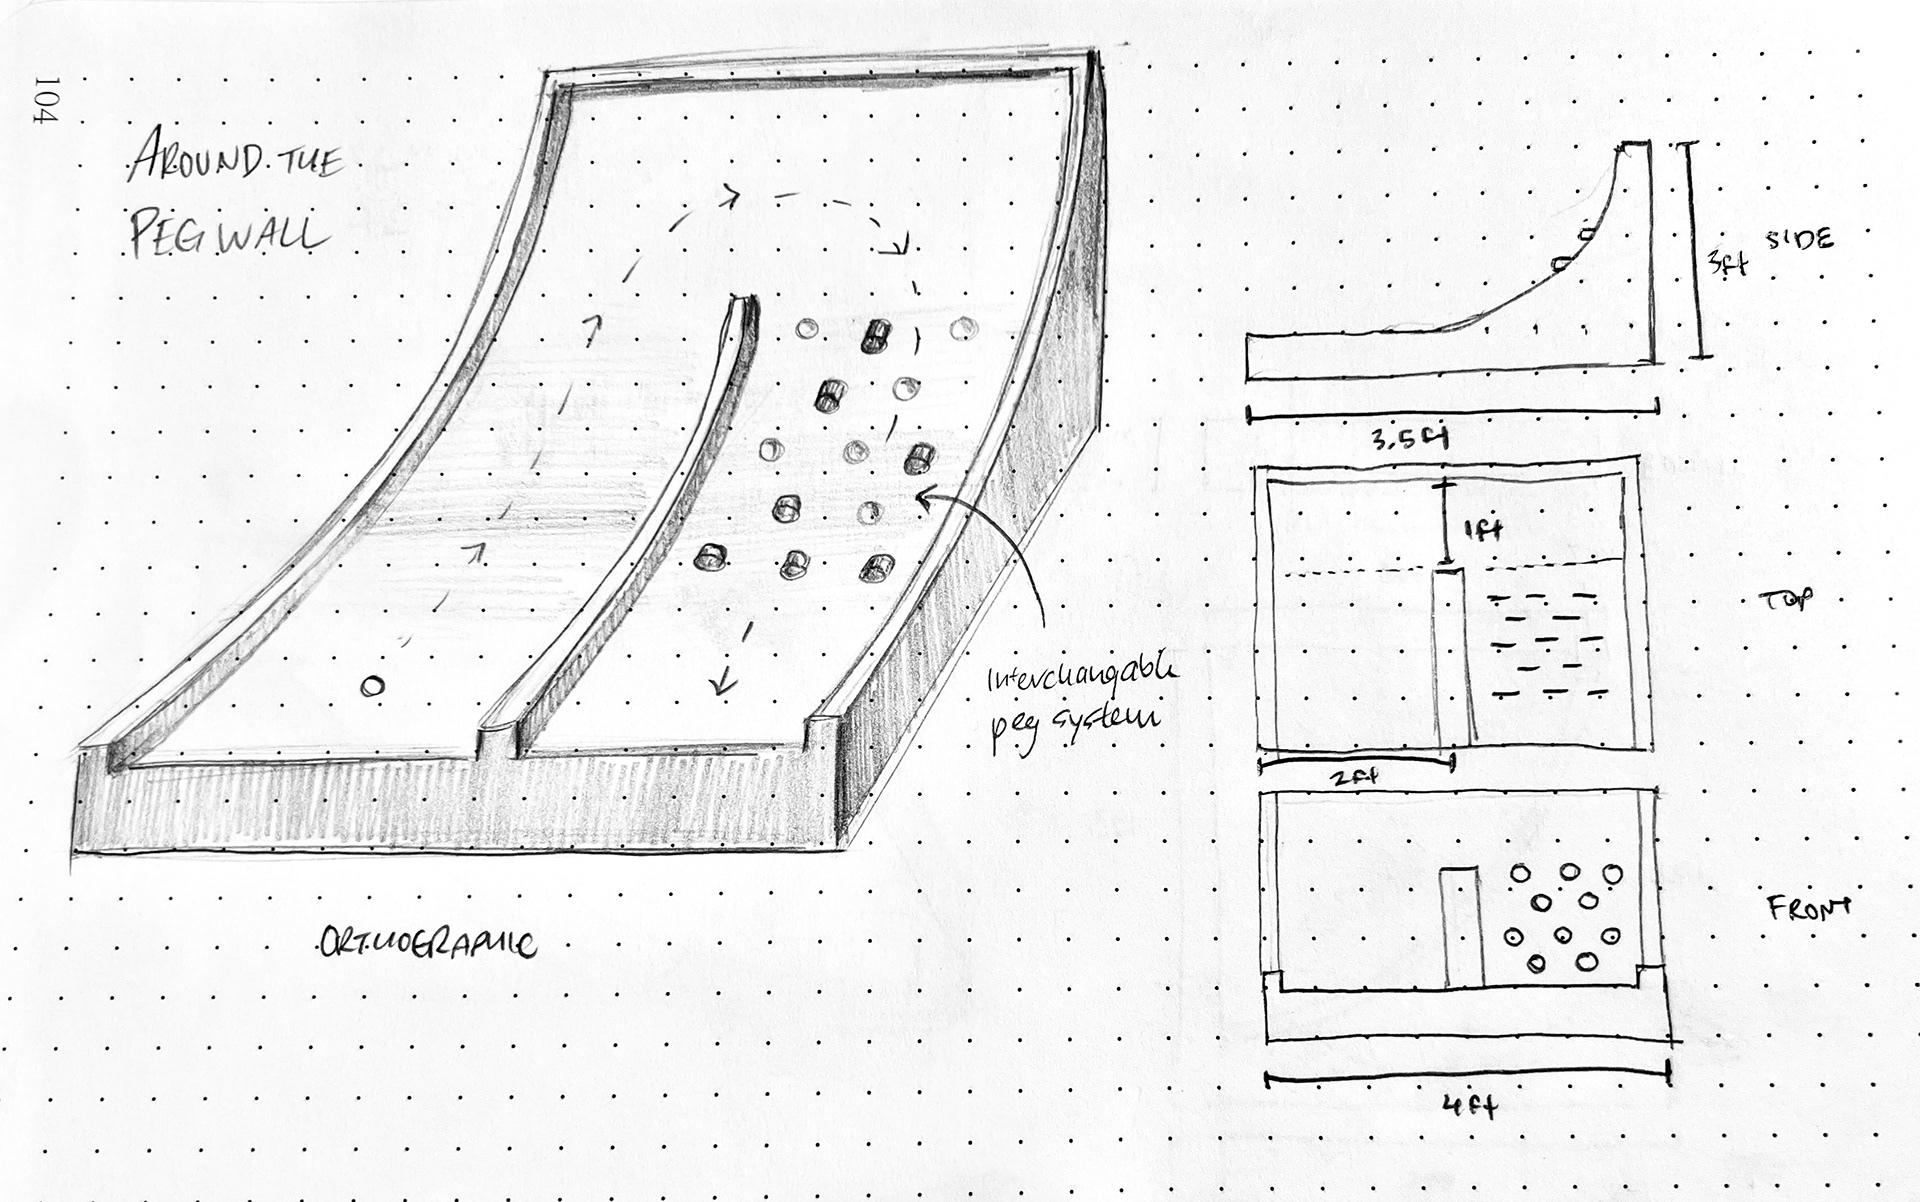 104
AROUND THE
PEG WALL
Interchangable
peg system
ORTHOGRAPHIC
3ft
SIDE
3.5ft
1ft
TOP
2ft
FRONT
4ft